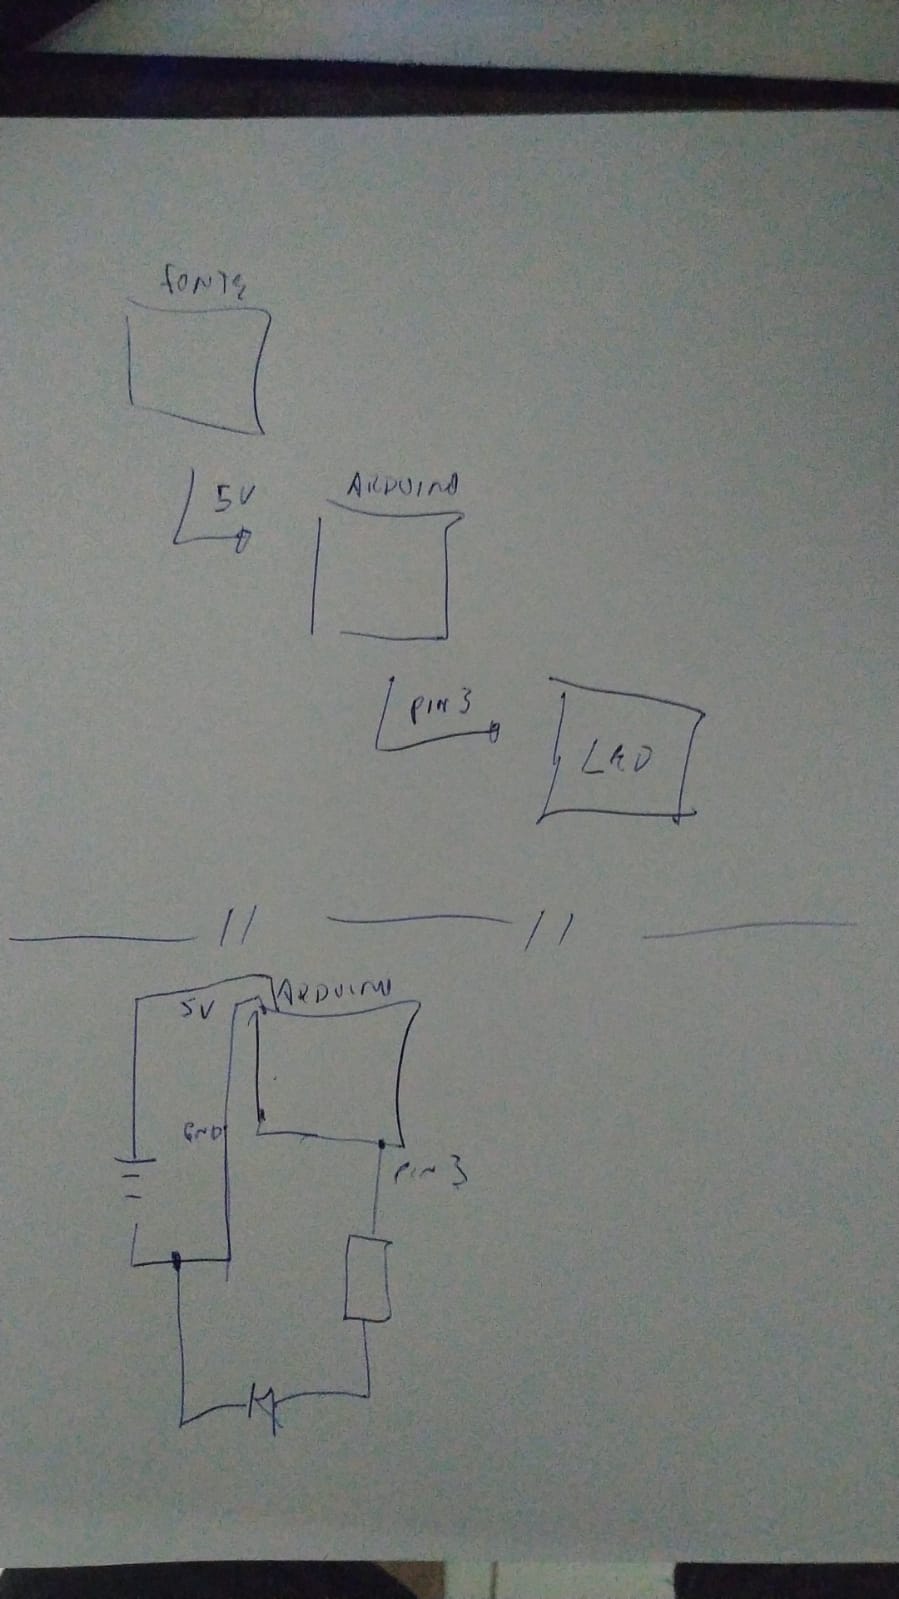 FONTE
5V
ARDUINO
PIN 3
LED
ARDUINO
5V
GND
PIN 3